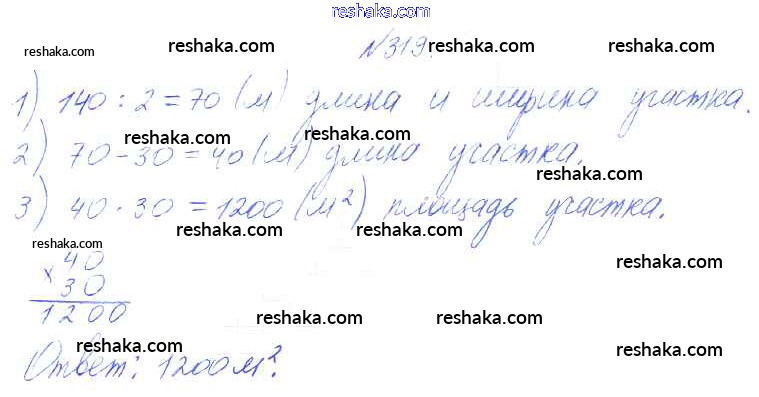 www.reshaka.com
reshaka.com reshaka.com reshaka.com reshaka.com
№319.
1) 140 : 2 = 70 (м) длина и ширина участка.
reshaka.com reshaka.com
2) 70 - 30 = 40 (м) длина участка.
reshaka.com
3) 40 · 30 = 1200 (м²) площадь участка.
reshaka.com reshaka.com reshaka.com
× 40
30
1200
reshaka.com
reshaka.com reshaka.com
reshaka.com reshaka.com
Ответ: 1200 м².